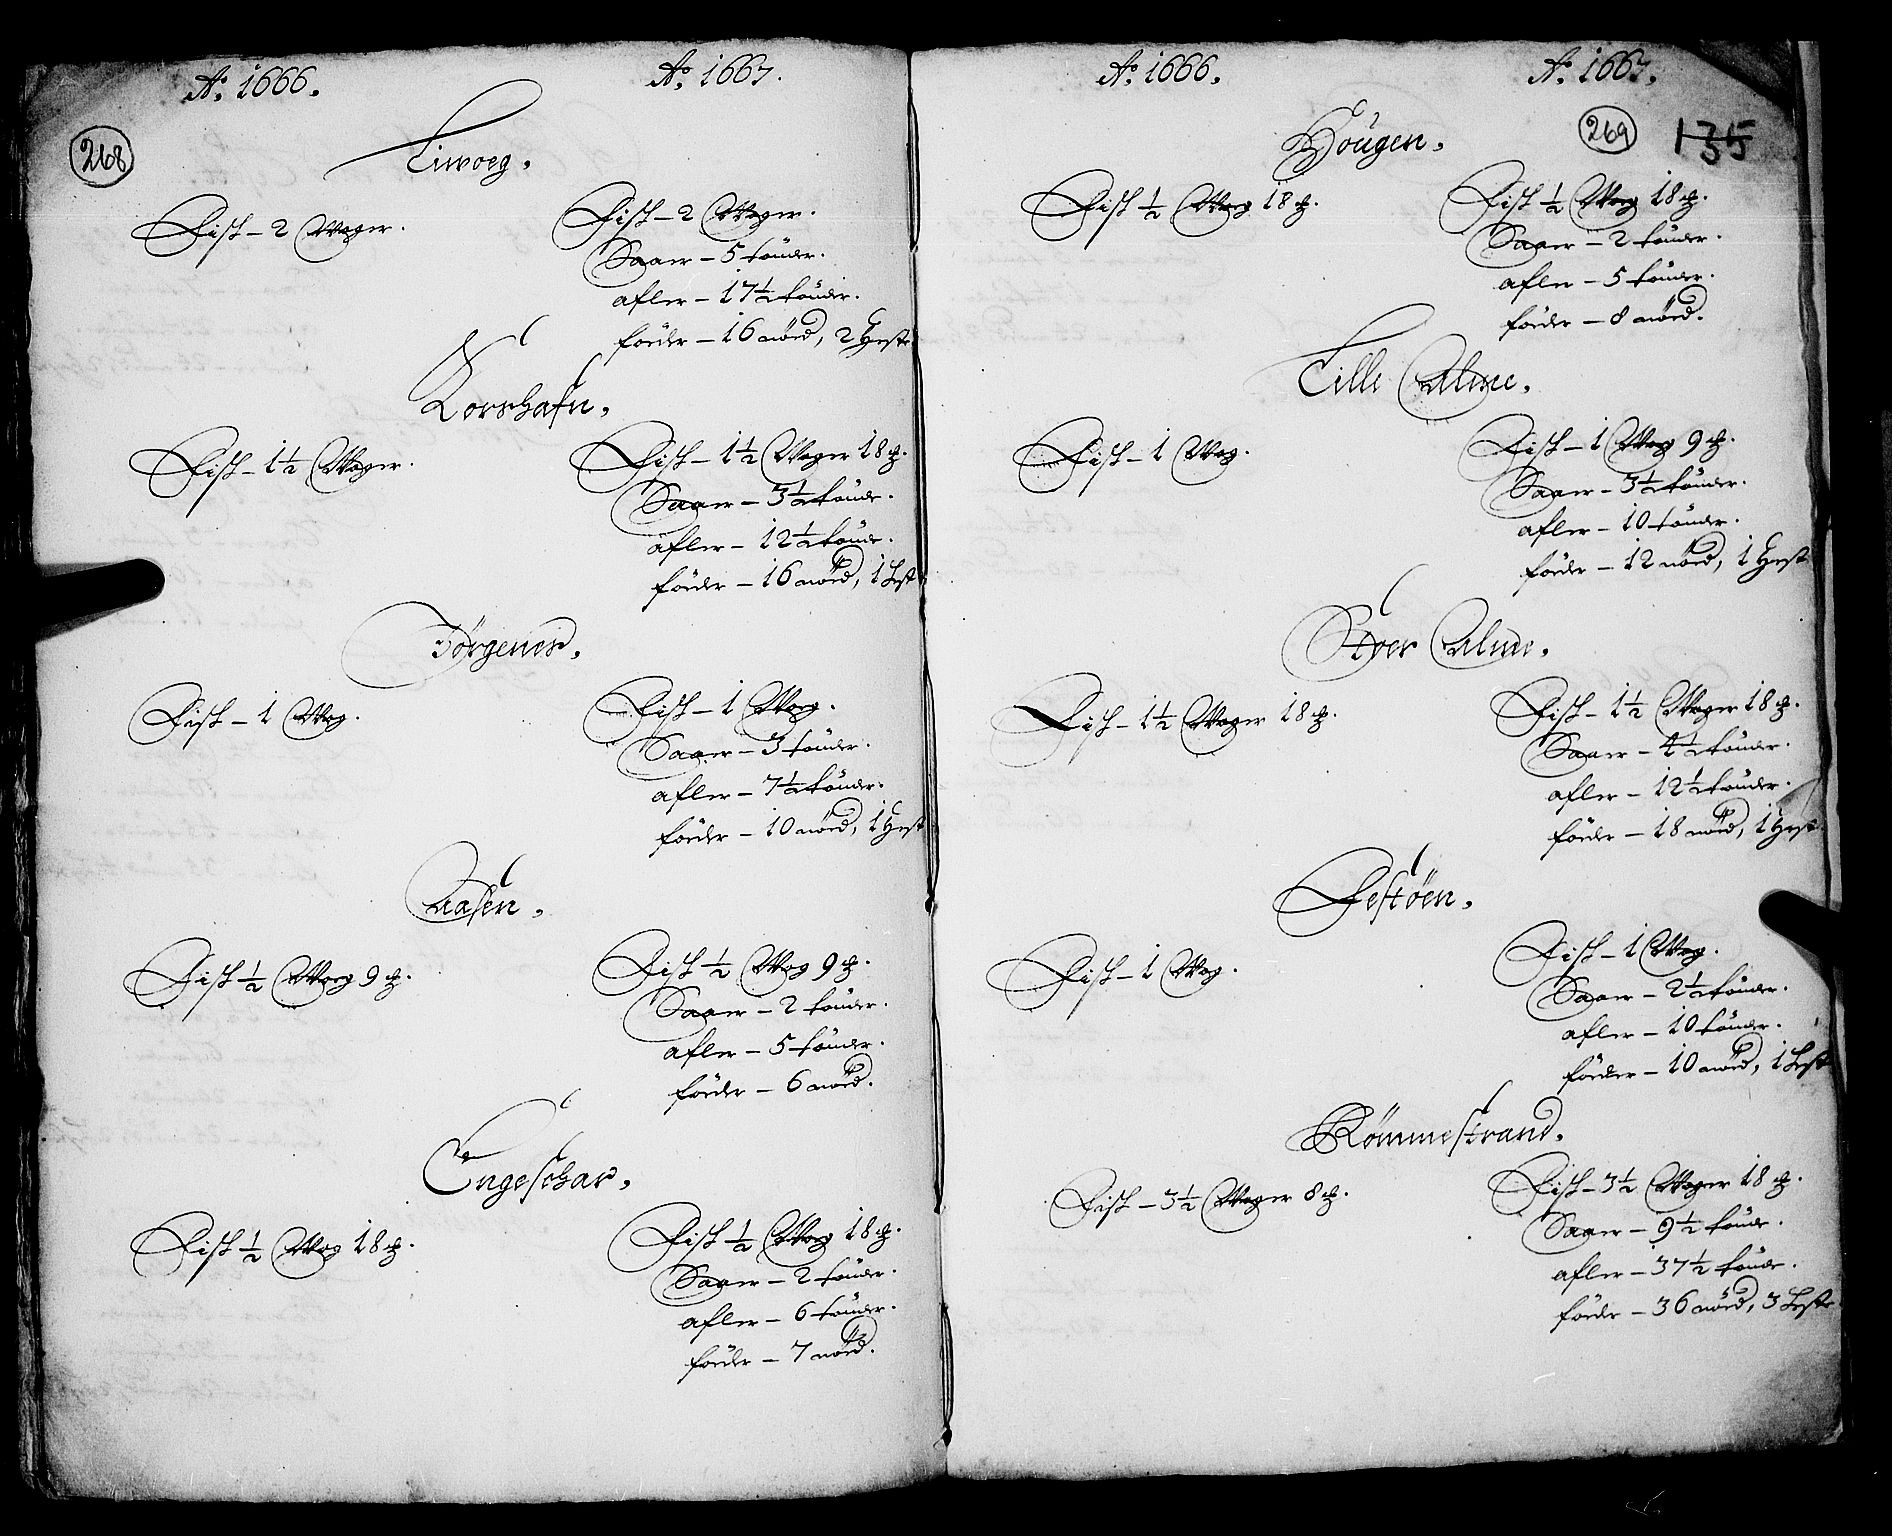 Ao. 1666. Ao. 1667.
268
Liwoeg.
Fisk - 2 Woger. Fisk - 2 Woger.
Saaer - 5 tønder.
afler - 17½ tønder.
føeder - 16 nöed, 2 Heste
Korshafn.
Fisk - 1½ Woger. Fisk - 1½ Woger 18 ℔.
Saaer - 3½ tønder.
afler - 12½ tønder.
føeder - 16 nöed, 1 Hest
Jörgenes.
Fisk - 1 Wog. Fisk - 1 Wog.
Saaer - 3 tønder.
afler - 7½ tønder.
føeder - 10 nöed, 1 Hest
Aasen.
Fisk ½ Woeg 9 ℔. Fisk ½ Wog 9 ℔.
Saaer - 2 tønder.
afler - 5 tønder.
føeder - 6 nöed.
Engeschar.
Fisk ½ Wog 18 ℔. Fisk ½ Woeg 18 ℔.
Saaer - 2 tønder.
afler - 6 tønder.
føeder - 7 nöed.
Ao. 1666. Ao. 1667.
269 135
Hougen.
Fisk ½ Woeg 18 ℔. Fisk ½ Woeg 18 ℔.
Saaer - 2 tønder.
afler - 5 tønder.
føeder - 8 nöed.
Lille Alme.
Fisk - 1 Wog. Fisk - 1 Wog 9 ℔.
Saaer - 3½ tønder.
afler - 10 tønder.
føeder - 12 nöed, 1 Hest
Stoer Alme.
Fisk - 1½ Woger 18 ℔. Fisk - 1½ Woger 18 ℔.
Saaer - 4½ tønder.
afler - 12½ tønder.
føeder - 18 nöed, 1 Hest.
Festöen.
Fisk - 1 Wog. Fisk - 1 Wog.
Saaer - 2½ tønder.
afler - 10 tønder.
føeder - 10 nöed, 1 Hest
Römmestrand.
Fisk - 3½ Woger 8 ℔. Fisk - 3½ Woger 18 ℔.
Saaer - 9½ tønder.
afler - 37½ tønder.
føeder - 36 nöed, 3 Heste